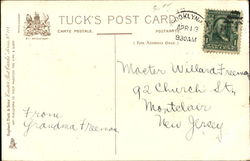 TUCK'S POST CARD
CARTE POSTALE.
POSTKARTE.
( For Address Only. )
BROOKLYN
APR 13
930AM
Master Willard Freeman
92 Church St.
Montclair
New Jersey
From
Grandma Freeman